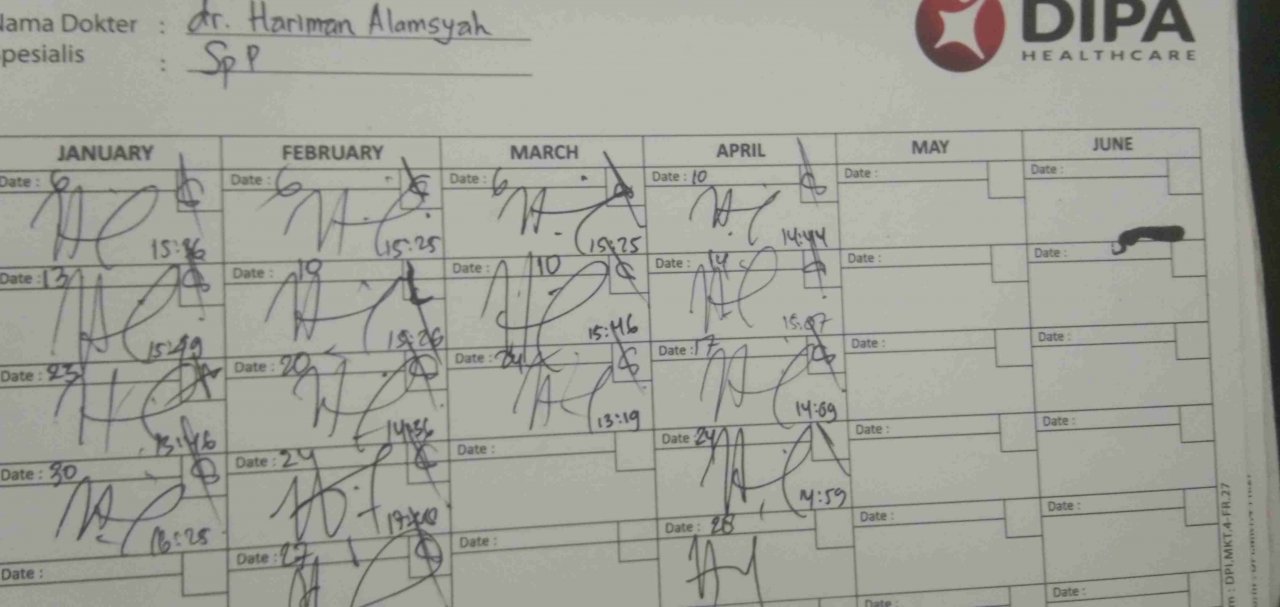 Nama Dokter : dr. Hariman Alamsyah
Spesialis : SpP
DIPA
HEALTHCARE
JANUARY FEBRUARY MARCH APRIL MAY JUNE
Date : 6 Date : 6 Date : 6 Date : 10 Date : Date :
15:36 15:25 15:25 14:44
Date : 13 Date : 19 Date : 10 Date : 14 Date : Date :
15:26 15:46
Date : 23 Date : 20 Date : 24 Date : 17 Date : Date :
13:46 14:36 13:19 14:09
Date : 30 Date : 24 Date : Date : 24 Date : Date :
16:25 14:59
Date : Date : 27 Date : Date : 28 Date : Date :
Date : Date :
DPI.MKT.4-FR.27